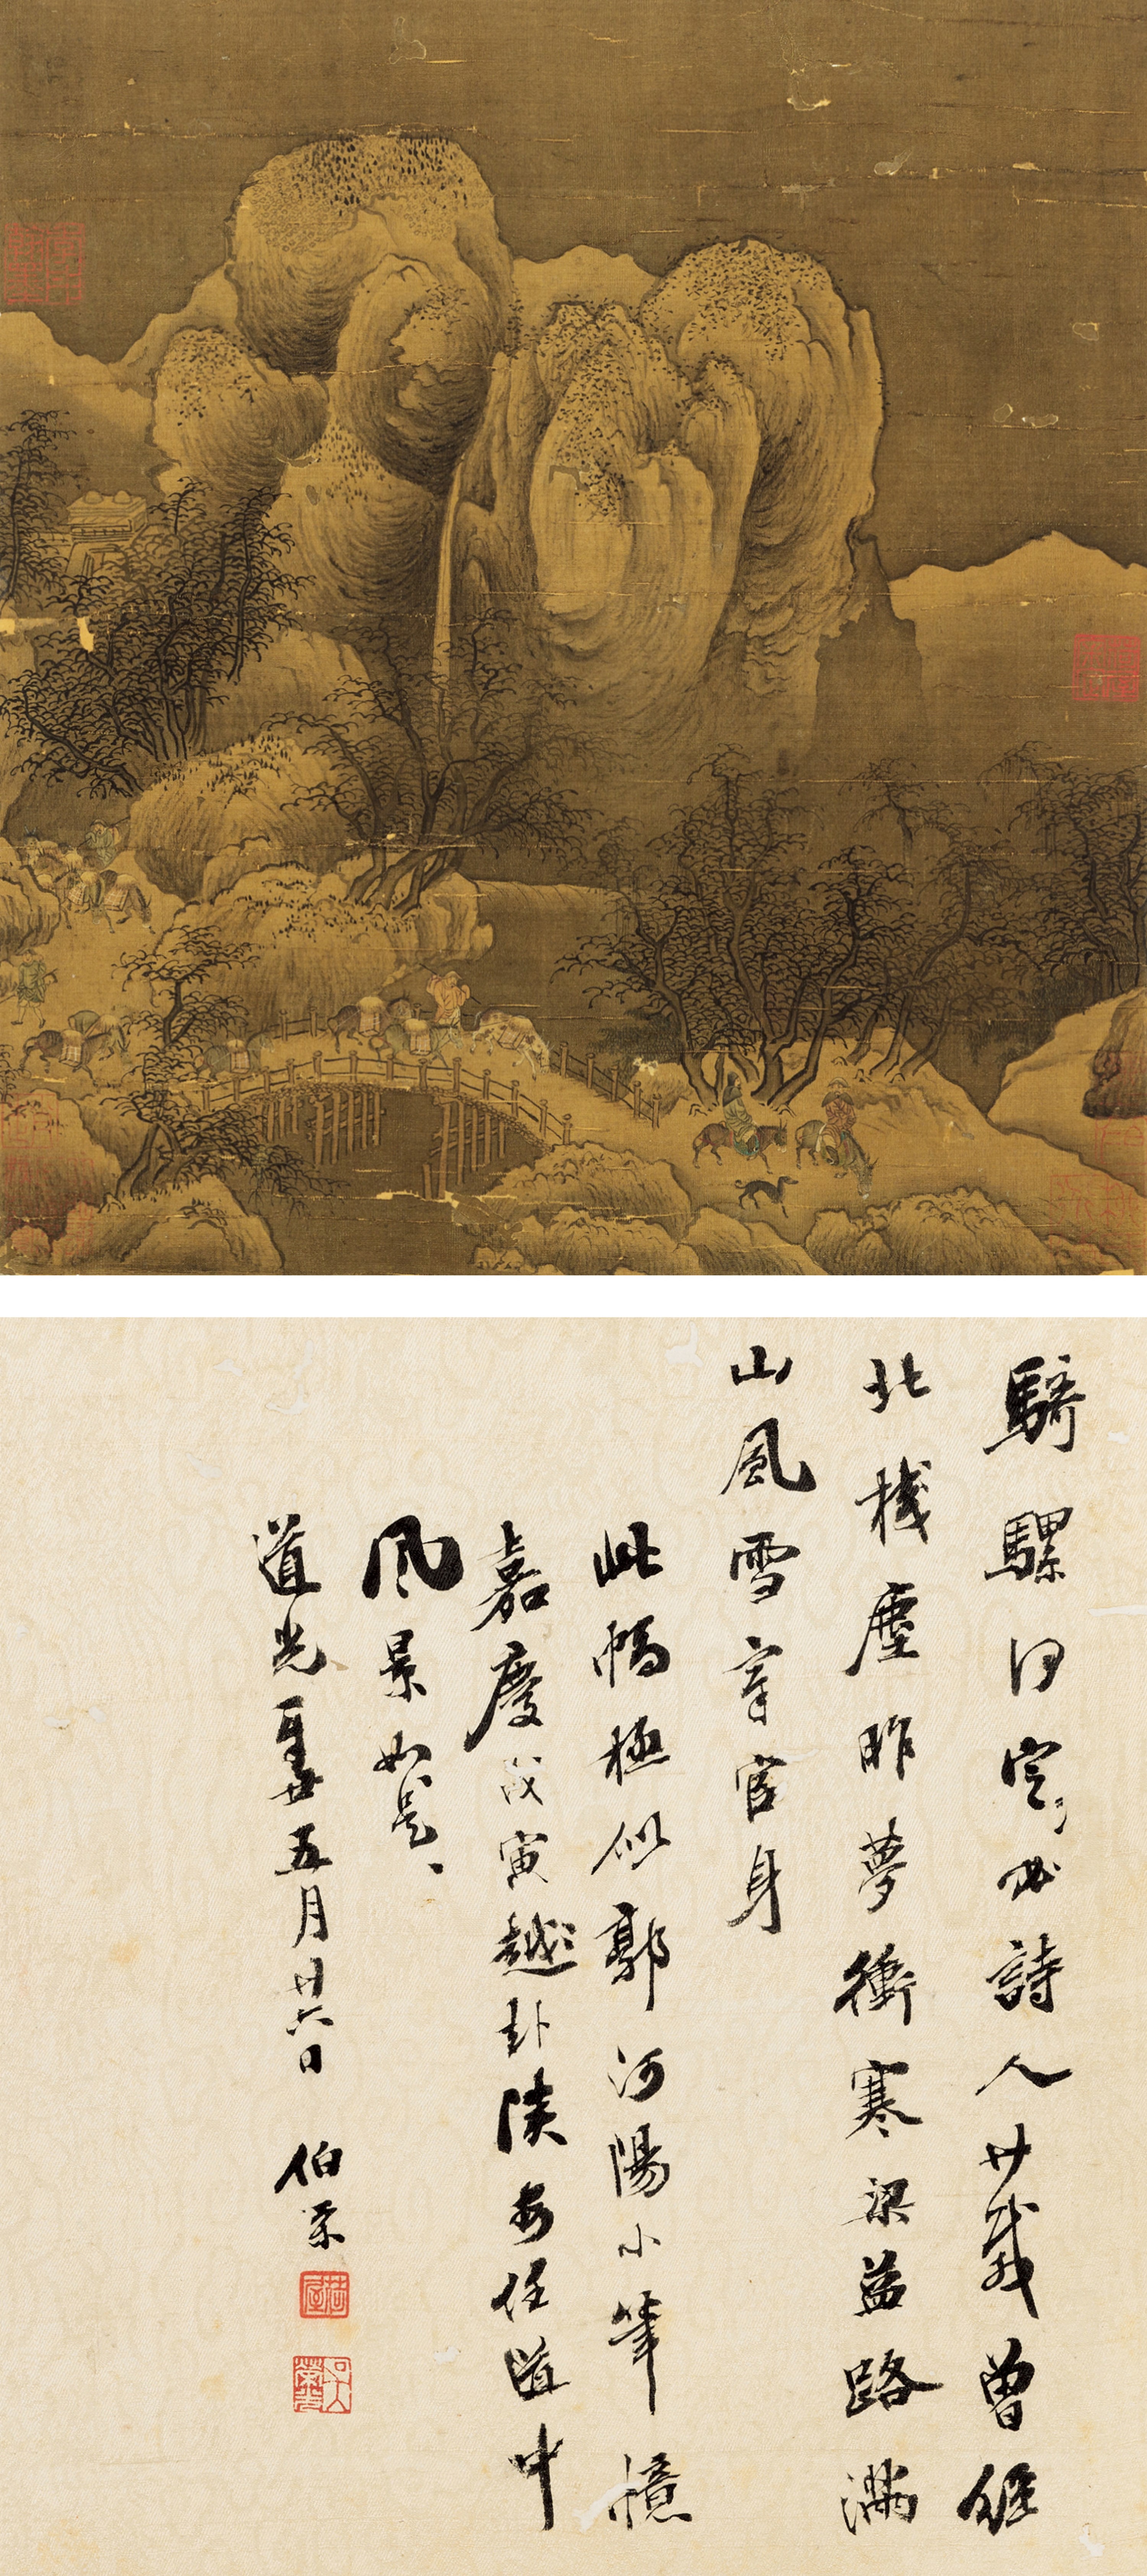 騎騾何定必詩人廿載曾經
北棧塵昨夢衝寒梁益路滿
山風雪宰官身
此幅極似郭河陽小筆憶
嘉慶戊寅越赴陝安任道中
風景如是
道光五月廿六日 伯榮
荷屋
吳榮光印